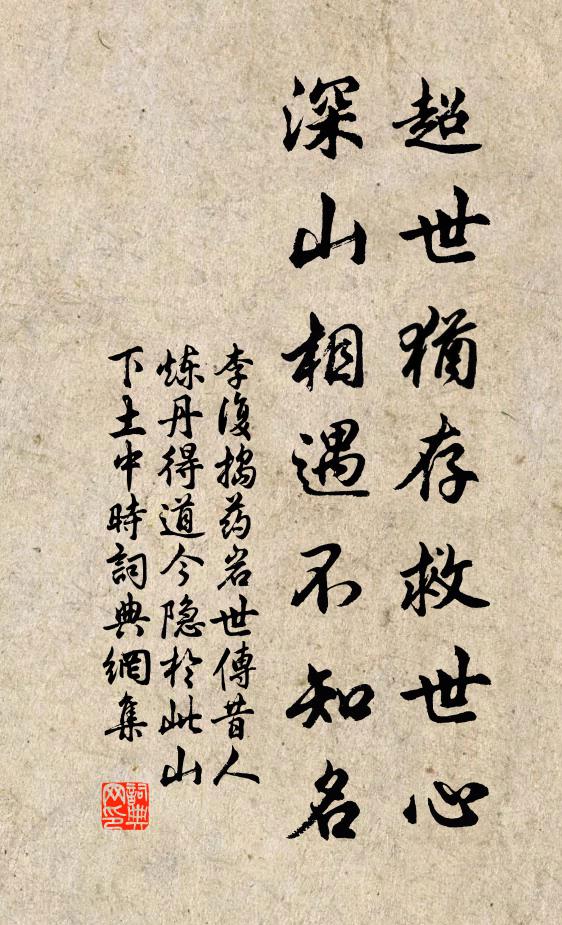 超世猶存救世心
深山相遇不知名
李復搗药岩世傳昔人
炼丹得道今隐於此山
下土中時詞典網集
詞典网印